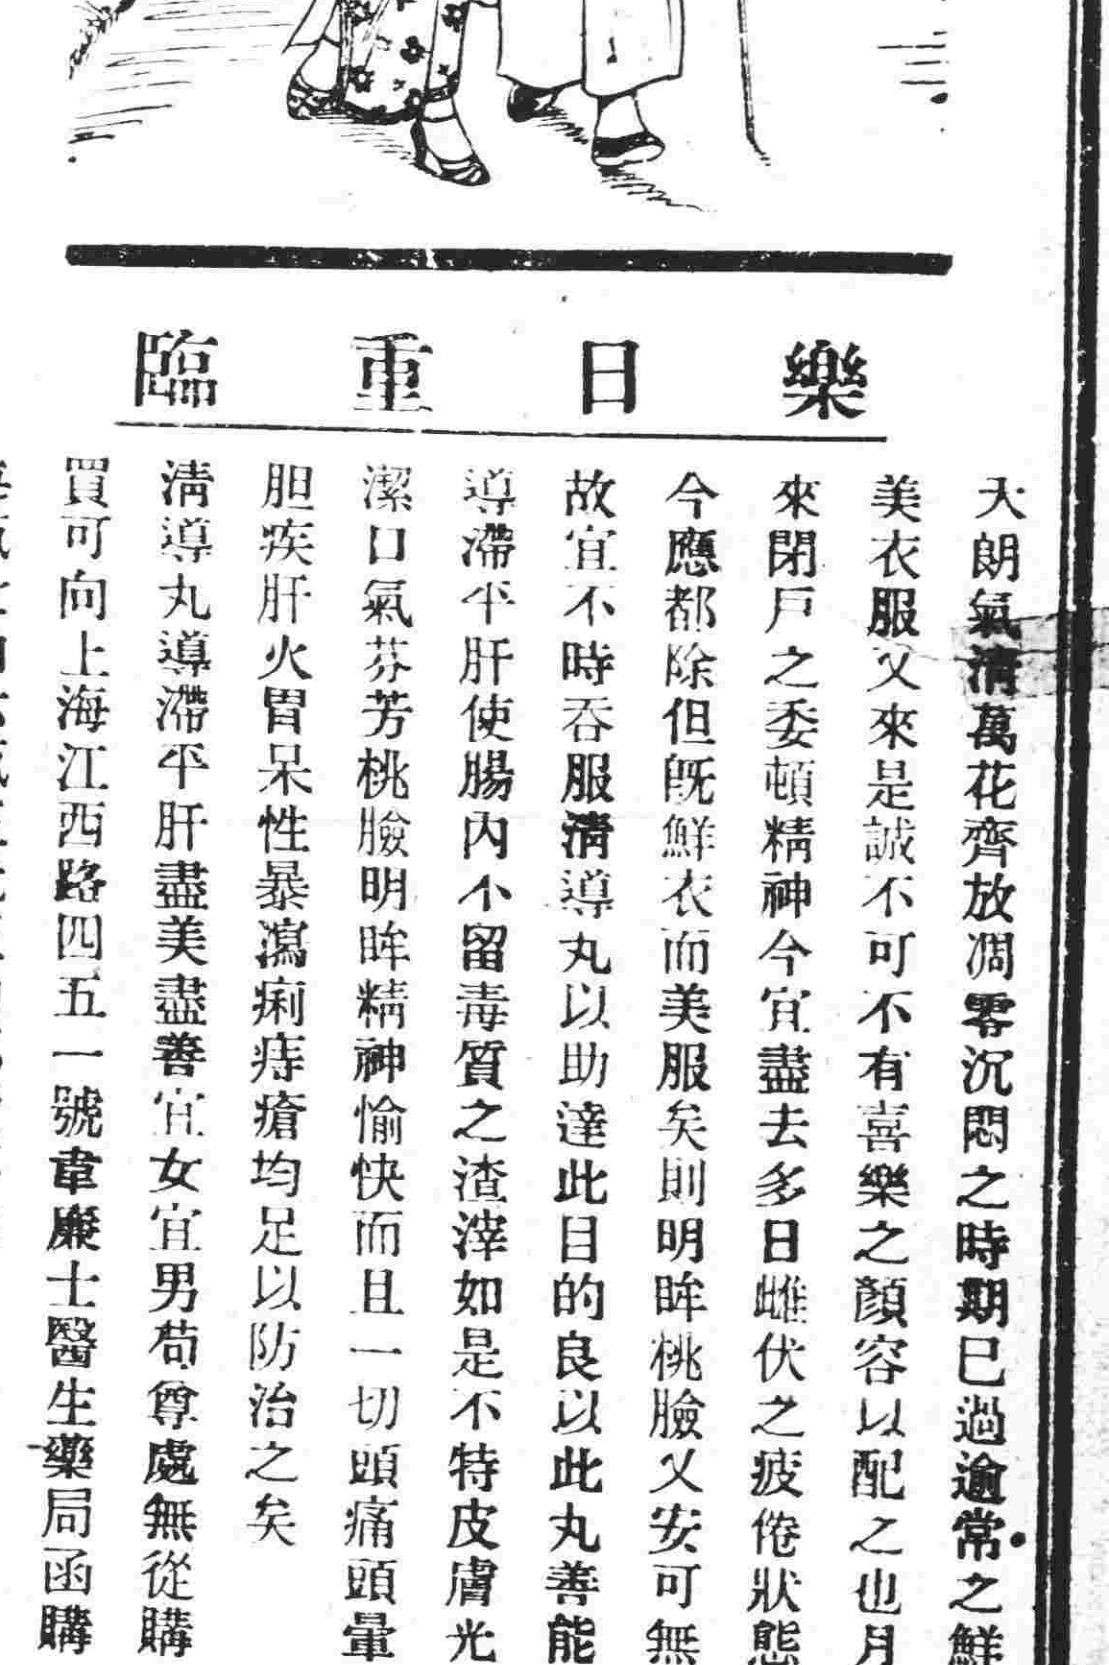 樂日重臨
天朗氣清萬花齊放凋零沉悶之時期已過逾常之鮮
美衣服又來是誠不可不有喜樂之顏容以配之也月
來閉戶之委頓精神今宜盡去多日雌伏之疲倦狀態
今應都除但旣鮮衣而美服矣則明眸桃臉又安可無
故宜不時吞服淸導丸以助達此目的良以此丸善能
導滯平肝使腸內不留毒質之渣滓如是不特皮膚光
潔口氣芬芳桃臉明眸精神愉快而且一切頭痛頭暈
胆疾肝火胃呆性暴瀉痢痔瘡均足以防治之矣
淸導丸導滯平肝盡美盡善宜女宜男苟尊處無從購
買可向上海江西路四五一號韋廉士醫生藥局函購